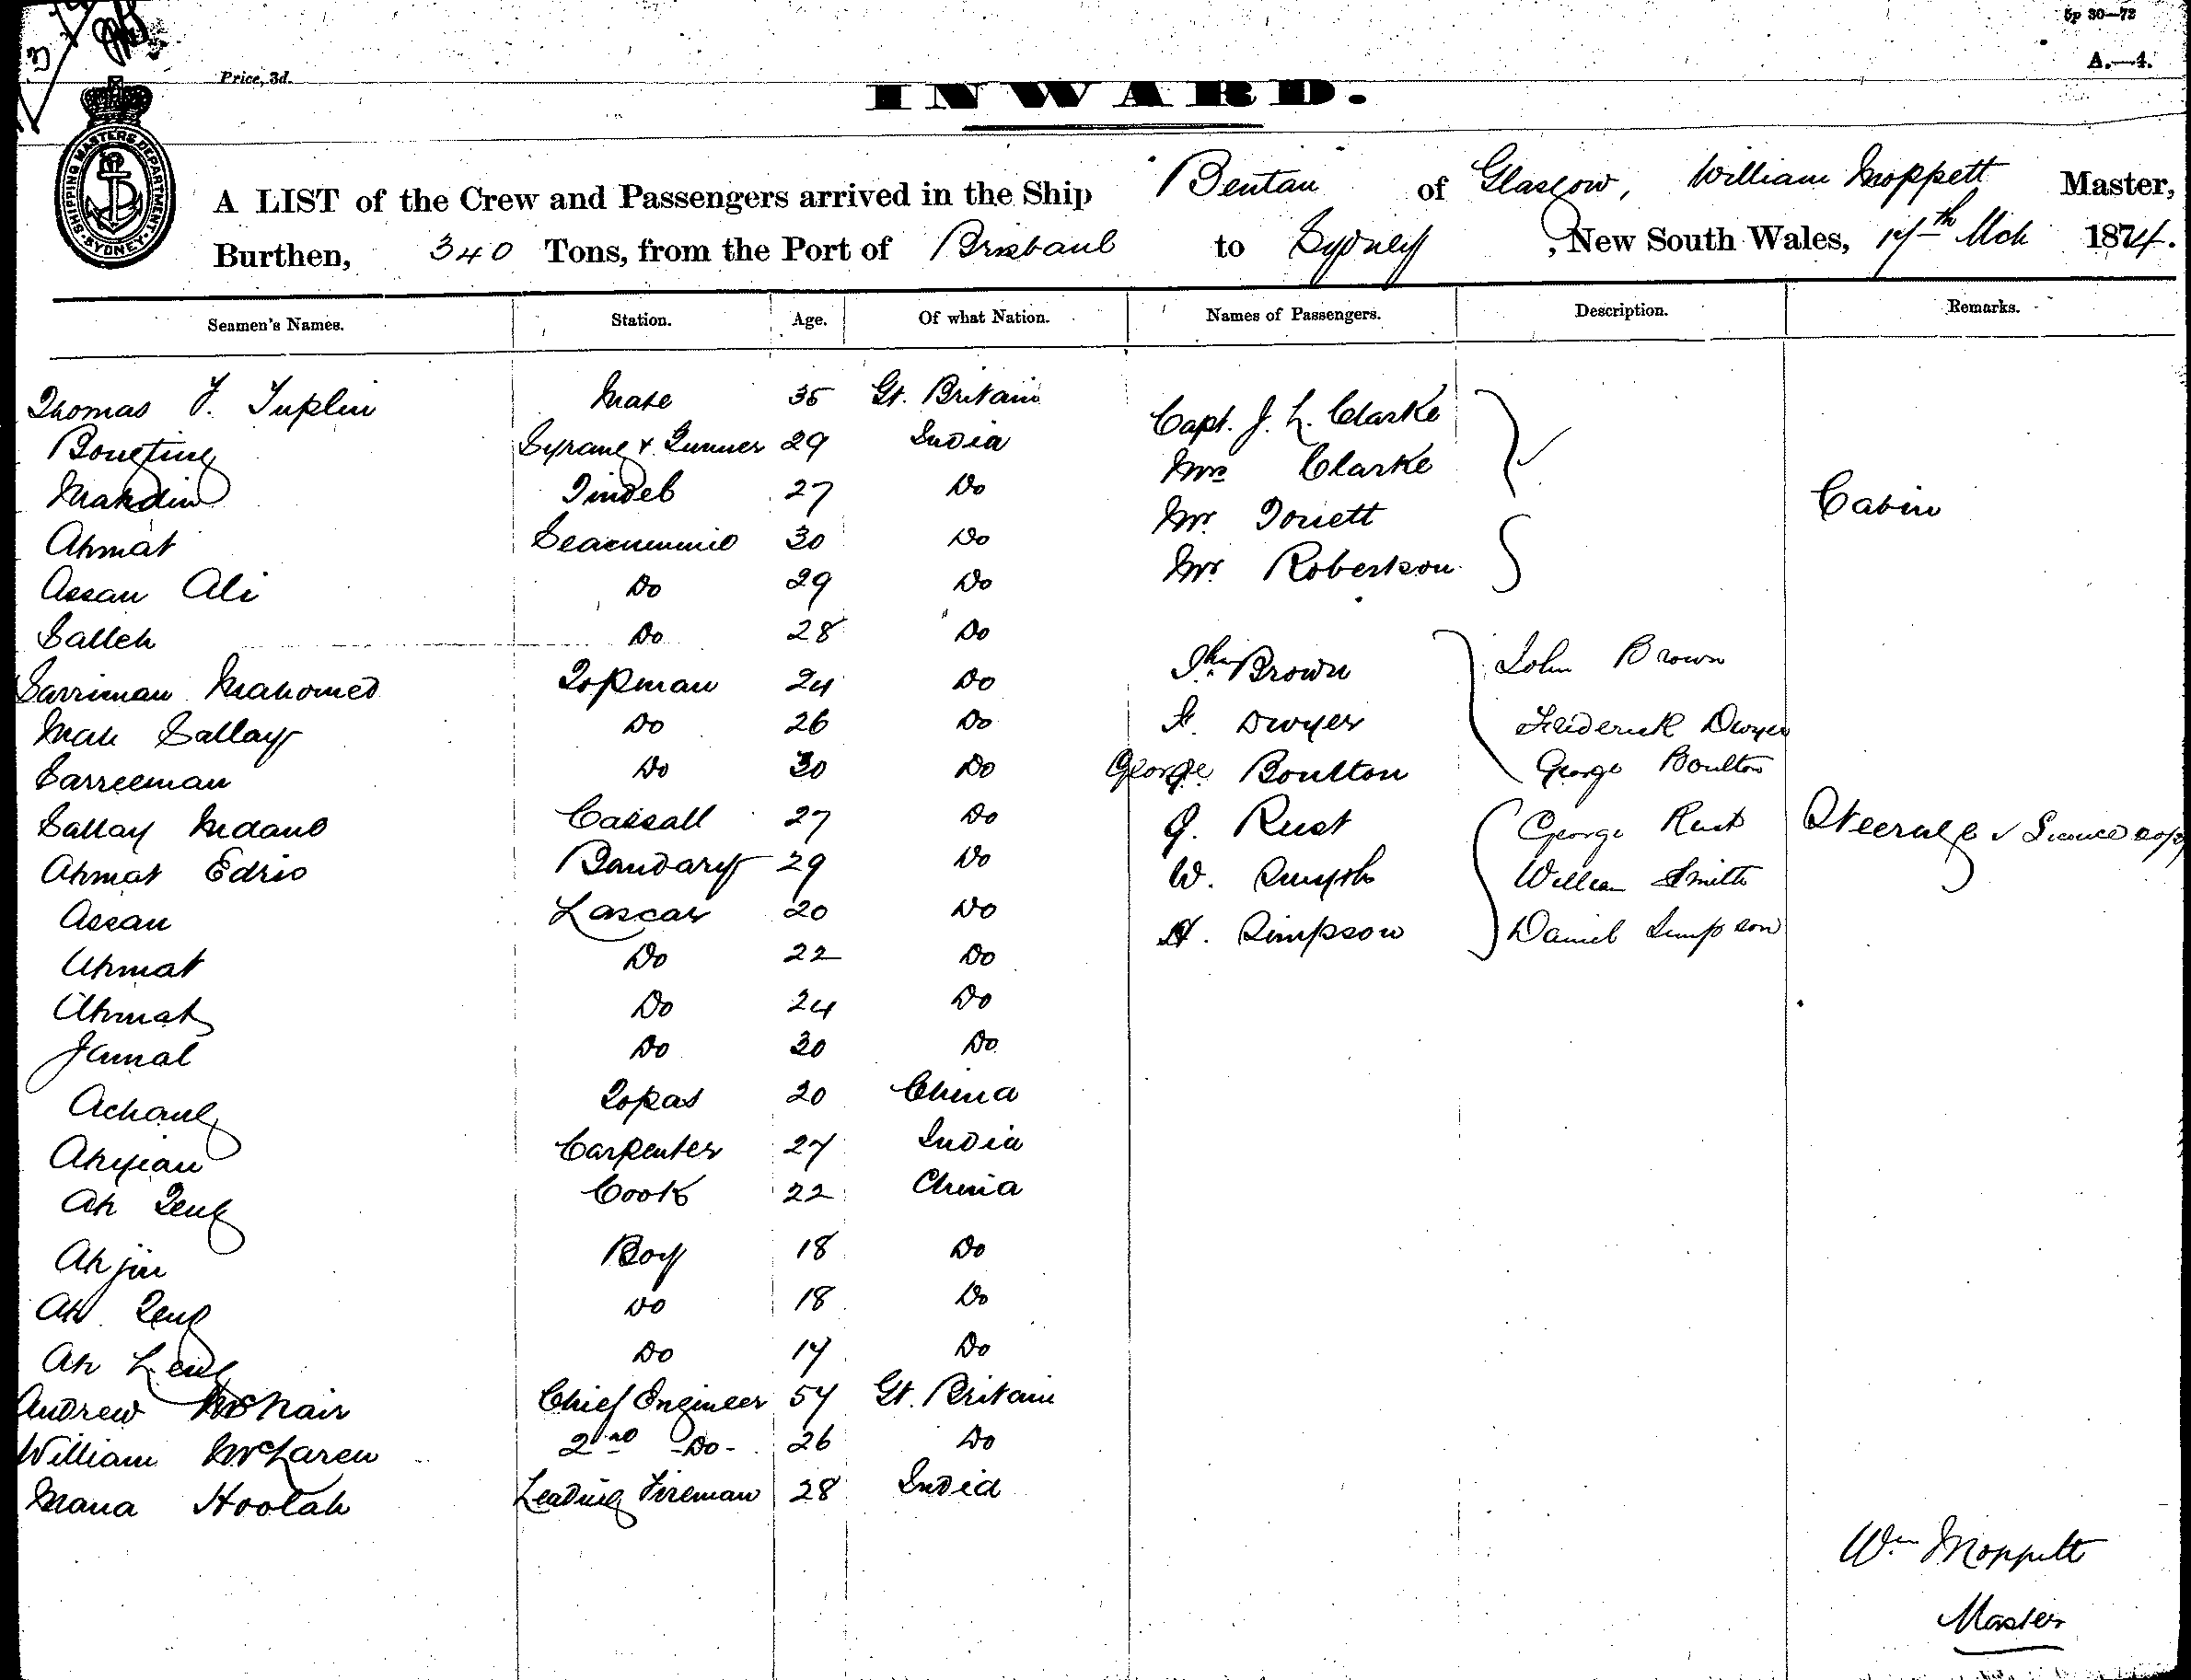 5p 30—72
A.—4.
Price, 3d.
INWARD.
SHIPPING MASTERS DEPARTMENT · SYDNEY ·
A LIST of the Crew and Passengers arrived in the Ship Bentan of Glasgow, William Moppett Master,
Burthen, 340 Tons, from the Port of Brisbane to Sydney, New South Wales, 17th Mch 1874.
Seamen's Names. Station. Age. Of what Nation. Names of Passengers. Description. Remarks.
Thomas F. Tuplin Mate 35 Gt. Britain Capt. J. L. Clarke
Bongting Syrang & Gunner 29 India Mrs Clarke
Mahdin Tindel 27 Do Mr. Cabin
Ahmat Seacunnie 30 Do Mr. Robertson
Assan Ali Do 29 Do
Salleh Do 28 Do Jhn Brown John Brown
Sarriman Mahomed Topman 24 Do F. Dwyer Frederick Dwyer
Mah Sallay Do 26 Do George Boulton George Boulton
Sarreeman Do 30 Do G. Rust George Rust Steerage
Sallay Cassall 27 Do W. Smyth William Smith
Ahmat Edrio Bandary 29 Do Simpson Daniel Simpson
Assan Lascar 20 Do
Ahmat Do 22 Do
Ahmat Do 24 Do
Jamal Do 30 Do
Achang Topas 20 China
Ahyian Carpenter 27 India
Ah Teng Cook 22 China
Ah jin Boy 18 Do
Ah Teng Do 18 Do
Ah Leng Do 17 Do
Andrew McNair Chief Engineer 54 Gt. Britain
William McLaren 2nd -Do- 26 Do
Mana Hoolah Leading Fireman 28 India
Wm Moppett
Master